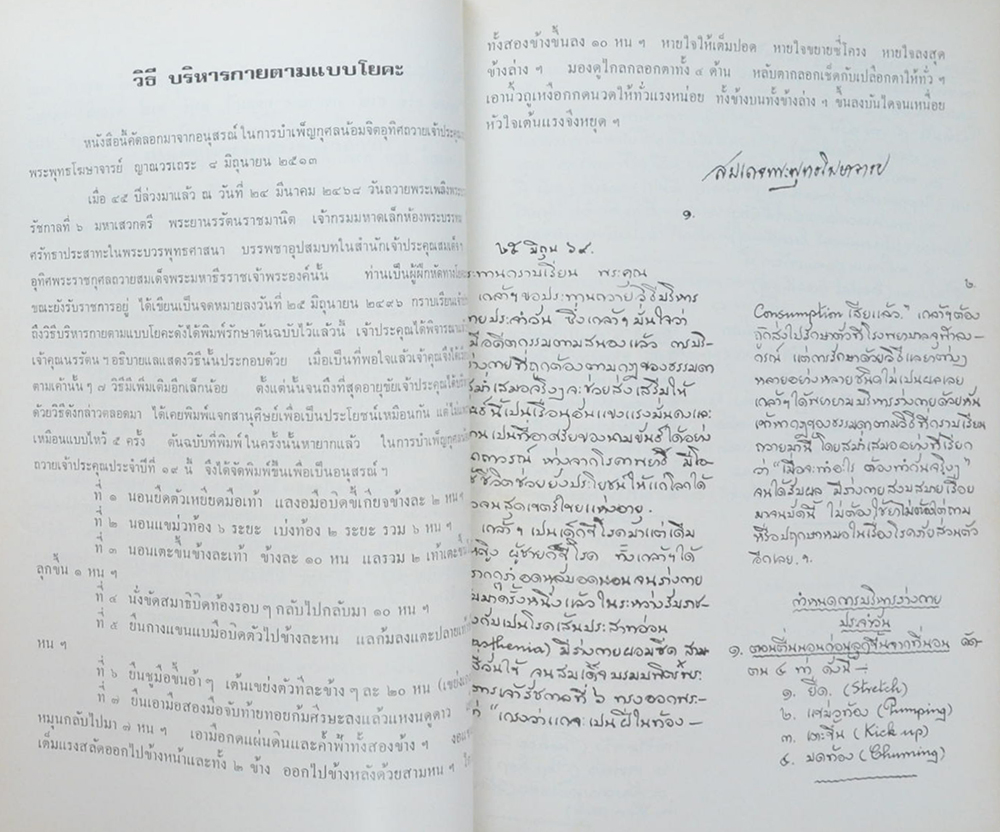 วิธี บริหารกายตามแบบโยคะ
หนังสือนี้คัดลอกมาจากอนุสรณ์ ในการบำเพ็ญกุศลน้อมจิตอุทิศถวายเจ้าประคุณ
พระพุทธโฆษาจารย์ ญาณวรเถระ ๘ มิถุนายน ๒๕๑๓
เมื่อ ๔๕ ปีล่วงมาแล้ว ณ วันที่ ๒๔ มีนาคม ๒๔๖๘ วันถวายพระเพลิงพระ
รัชกาลที่ ๖ มหาเสวกตรี พระยานรรัตนราชมานิต เจ้ากรมมหาดเล็กห้องพระบรรทม
ศรัทธาประสาทะในพระบวรพุทธศาสนา บรรพชาอุปสมบทในสำนักเจ้าประคุณสมเด็จฯ
อุทิศพระราชกุศลถวายสมเด็จพระมหาธีรราชเจ้าพระองค์นั้น ท่านเป็นผู้ฝึกหัดทาง
ขณะยังรับราชการอยู่ ได้เขียนเป็นจดหมายลงวันที่ ๒๕ มิถุนายน ๒๔๙๖ กราบเรียน
ถึงวิธีบริหารกายตามแบบโยคะดังได้พิมพ์รักษาต้นฉบับไว้แล้วนี้ เจ้าประคุณได้พิจารณา
เจ้าคุณนรรัตน ฯ อธิบายแลแสดงวิธีนั้นประกอบด้วย เมื่อเป็นที่พอใจแล้วเจ้าคุณจึงได้
ตามเค้านั้น ๆ ๗ วิธีมีเพิ่มเติมอีกเล็กน้อย ตั้งแต่นั้นจนถึงที่สุดอายุขัยเจ้าประคุณได้
ด้วยวิธีดังกล่าวตลอดมา ได้เคยพิมพ์แจกสานุศิษย์เพื่อเป็นประโยชน์เหมือนกัน แต่ไม่
เหมือนแบบไหว้ ๕ ครั้ง ต้นฉบับที่พิมพ์ในครั้งนั้นหายากแล้ว ในการบำเพ็ญกุศล
ถวายเจ้าประคุณประจำปีที่ ๑๙ นี้ จึงได้จัดพิมพ์ขึ้นเพื่อเป็นอนุสรณ์ ฯ
ที่ ๑ นอนยืดตัวเหยียดมือเท้า แลงอมือบิดขี้เกียจข้างละ ๒ หน ฯ
ที่ ๒ นอนแขม่วท้อง ๖ ระยะ เบ่งท้อง ๒ ระยะ รวม ๖ หน ฯ
ที่ ๓ นอนเตะขึ้นข้างละเท้า ข้างละ ๑๐ หน แลรวม ๒ เท้าเตะขึ้น
ลุกขึ้น ๑ หน ฯ
ที่ ๔ นั่งขัดสมาธิบิดท้องรอบ ๆ กลับไปกลับมา ๑๐ หน ฯ
ที่ ๕ ยืนกางแขนแบมือบิดตัวไปข้างละหน แลก้มลงแตะปลายเท้า
หน ฯ
ที่ ๖ ยืนชูมือขึ้นอ้า ๆ เต้นเขย่งตัวทีละข้าง ๆ ละ ๒๐ หน (เขย่ง
ที่ ๗ ยืนเอามือสองมือจับท้ายทอยก้มศีรษะลงแล้วแหงนดูดาว
หมุนกลับไปมา ๗ หน ฯ เอามือกดแผ่นดินและค้ำฟ้าทั้งสองข้าง ฯ งอ
เต็มแรงสลัดออกไปข้างหน้าและทั้ง ๒ ข้าง ออกไปข้างหลังด้วยสามหน ฯ
ทั้งสองข้างขึ้นลง ๑๐ หน ฯ หายใจให้เต็มปอด หายใจขยายซี่โครง หายใจลงสุด
ข้างล่าง ฯ มองดูไกลกลอกตาทั้ง ๔ ด้าน หลับตากลอกเช็ดกับเปลือกตาให้ทั่ว ฯ
เอานิ้วถูเหงือกกดนวดให้ทั่วแรงหน่อย ทั้งข้างบนทั้งข้างล่าง ฯ ขึ้นลงบันไดจนเหนื่อย
หัวใจเต้นแรงจึงหยุด ฯ
สมเด็จพระพุทธโฆษาจารย์
๑.
๒๕ มิถุน ๖๙.
ประทานกราบเรียน พระคุณ
เกล้าฯ ขอประทานถวายวิธีบริหาร
กายประจำวัน ซึ่งเกล้าฯ มั่นใจว่า
ร่างกายที่ถูกต้องตามกฎของธรรมดา
สม่ำเสมอจริงๆ จะช่วยส่งเสริมให้
ขันธ์นี้เป็นเรือนอันแข็งแรงมั่นคงและ
เป็นที่อาศัยของนามขันธ์ได้อย่าง
ถาวรณ์ ห่างจากโรคาพยาธิ มีโอ-
ใช้ชีวิตช่วยยังประโยชน์ให้แก่โลกได้
จนสุดเขตร์ไขยแห่งอายุ.
เกล้าฯ เป็นเด็กขี้โรคมาแต่เดิม
หญิง ผู้ชายก็ขี้โรค ทั้งเกล้าฯ ได้
ตรากตรำอดนอนจนร่างกาย
มาครั้งหนึ่งแล้วในระหว่างรับราช-
เป็นโรคเส้นประสาทอ่อน
มีร่างกายผอมซีด สาม
จนสมเด็จบรมบพิตร์พระ
เจ้ารัชกาลที่ ๖ ทรงออกพระ-
"เกรงว่าแกจะเป็นฝีในท้อง-
๒.
Consumption เสียแล้ว." เกล้าฯ ต้อง
ถูกส่งไปรักษาตัวที่โรงพยาบาลจุฬาลง-
กรณ์ แต่การรักษาด้วยวิธีแลยาต่างๆ
หลายอย่างหลายชนิดไม่เป็นผลเลย
เกล้าฯ ได้พยายามบริหารร่างกายด้วยตน
เองตามกฎของธรรมดาตามวิธีที่กราบเรียน
ถวายมานี้ โดยสม่ำเสมออย่างที่เรียก
ว่า "เมื่อจะทำอะไร ต้องทำกันจริงๆ"
จนได้รับผล มีร่างกายสงบสบายเรื่อย
มาจนบัดนี้ ไม่ต้องใช้ยาไม่ต้องไต่ถาม
หรือปฤกษาหมอในเรื่องโรคภัยส่วนตัว
อีกเลย. ฯ.
กำหนดการบริหารร่างกาย
ประจำวัน
๑. ตอนตื่นนอนก่อนลุกขึ้นจากที่นอน ดัด
ตน ๔ ท่า ดังนี้ —
๑. ยืด. (Stretch)
๒. แขม่วท้อง (Pumping)
๓. เตะขึ้น (Kick up)
๔. บดท้อง (Churning)